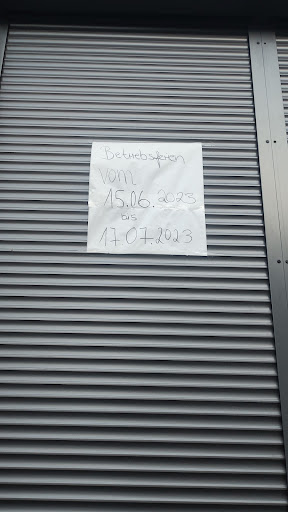 Betriebsferien
vom
15.06.2023
bis
17.07.2023